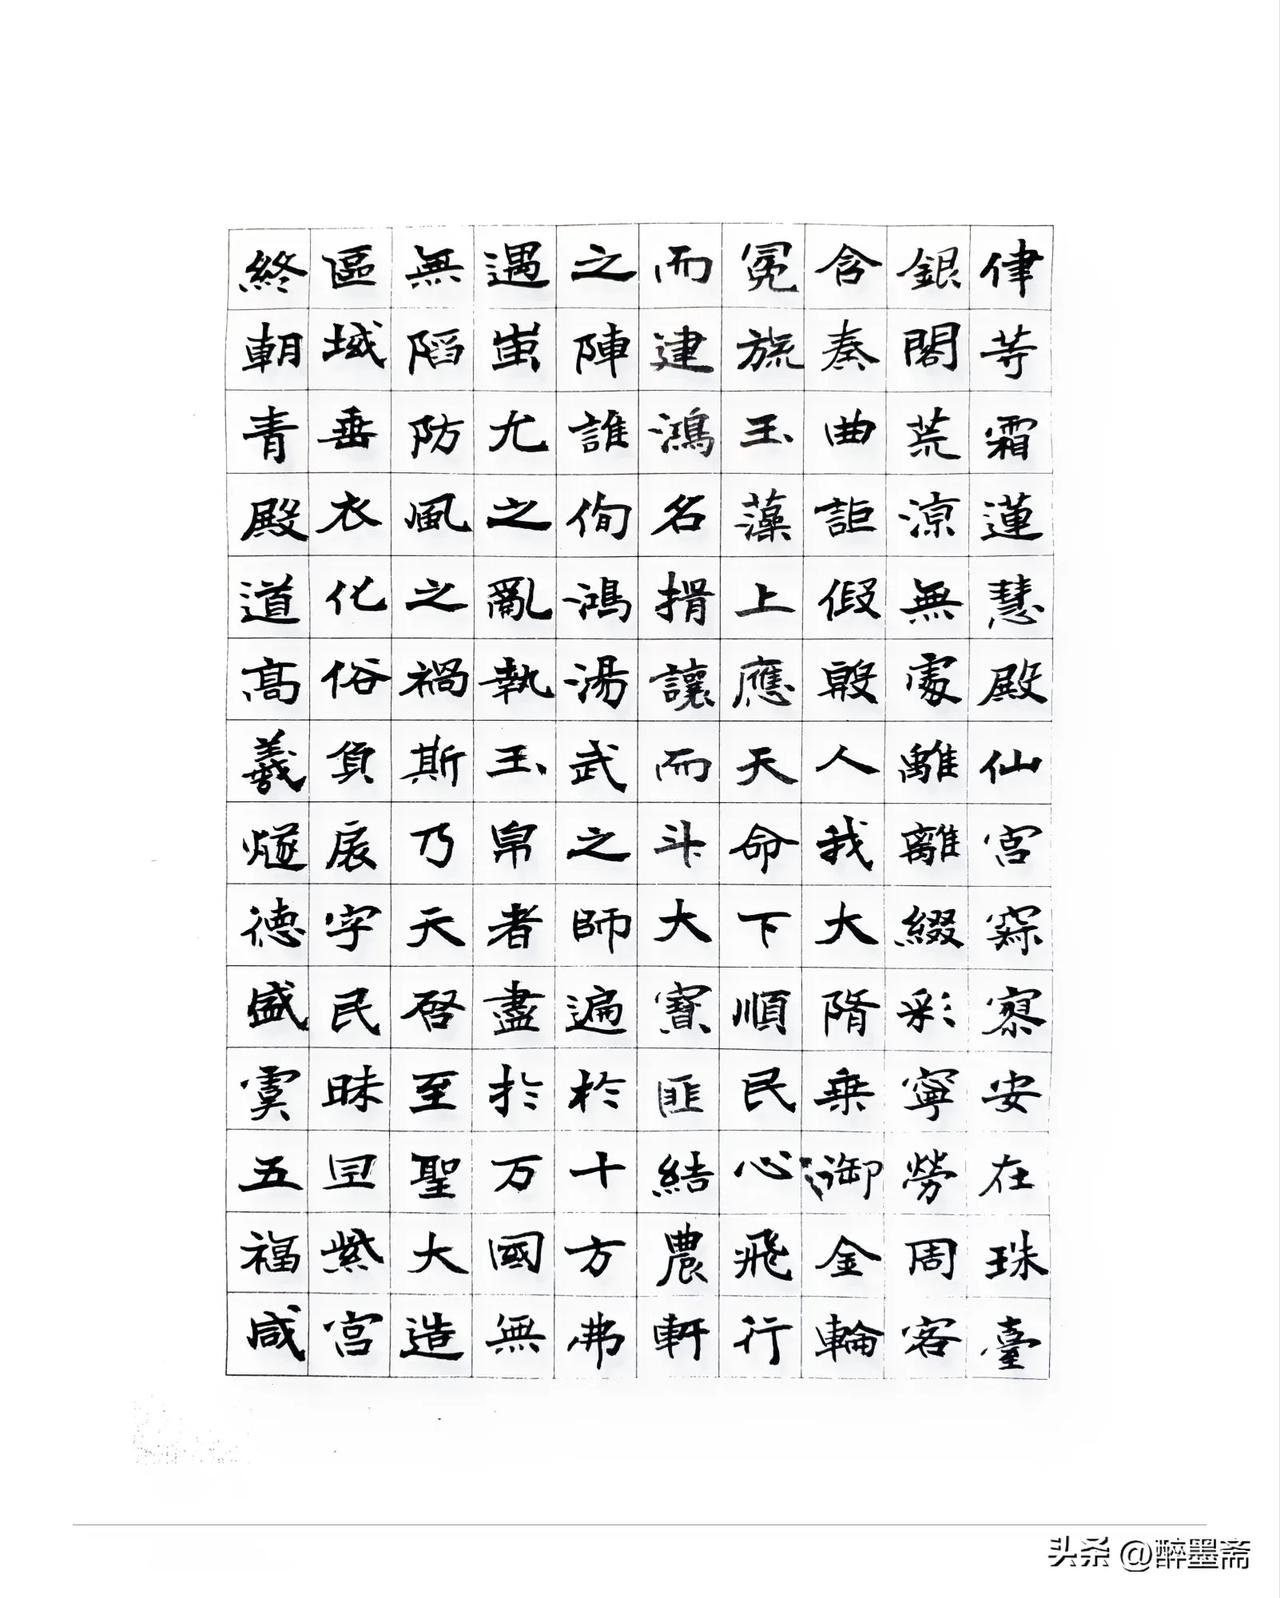 律等霜蓮慧殿仙宮寂寥安在珠臺
銀閣荒涼無處離離綴彩寧勞周客
含奏曲詎假殷人我大隋乘御金輪
冕旒玉藻上應天命下順民心飛行
而建鴻名揖讓而升大寶匪結農軒
之陣誰侚鴻湯武之師遍於十方弗
遇蚩尤之亂執玉帛者盡於万國無
無陷防風之禍斯乃天啓至聖大造
區域垂衣化俗負扆字民昧旦紫宮
終朝青殿道高羲燧德盛虞五福咸
头条 @醉墨斋